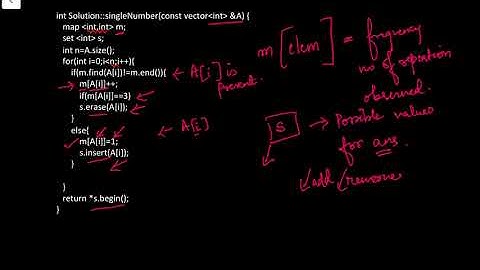 int Solution::singleNumber(const vector<int> &A) {
map <int,int> m;
set <int> s;
int n=A.size();
for(int i=0;i<n;i++){
if(m.find(A[i])!=m.end()){
m[A[i]]++;
if(m[A[i]]==3)
s.erase(A[i]);
}
else{
m[A[i]]=1;
s.insert(A[i]);
}
}
return *s.begin();
}
← A[i] is
present.
← A[i]
m [elem] = frequency
no of repetition
observed.
S → Possible values
for ans.
add / remove